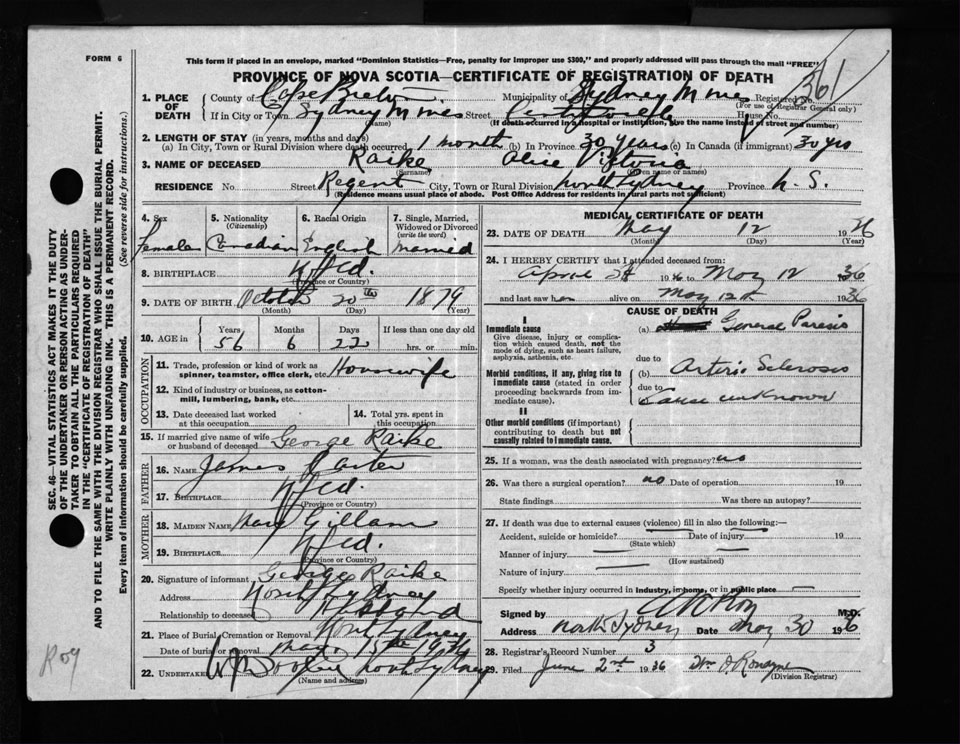 FORM 6
This form if placed in an envelope, marked "Dominion Statistics—Free, penalty for improper use $300," and properly addressed will pass through the mail "FREE"
PROVINCE OF NOVA SCOTIA—CERTIFICATE OF REGISTRATION OF DEATH
361
1. PLACE OF DEATH County of Cape Breton Municipality of Sydney Mines Registered No.
(For use of Registrar General only)
If in City or Town Sydney Mines Street House No.
(name) (If death occurred in a hospital or institution, give the name instead of street and number)
2. LENGTH OF STAY (in years, months and days)
(a) In City, Town or Rural Division where death occurred 1 month (b) In Province 30 years (c) In Canada (if immigrant) 30 yrs
3. NAME OF DECEASED Raike Alice Victoria
(Surname) (Given name or names)
RESIDENCE No. Street Regent City, Town or Rural Division North Sydney Province N. S.
(Residence means usual place of abode. Post Office Address for residents in rural parts not sufficient)
4. Sex 5. Nationality (Citizenship) 6. Racial Origin 7. Single, Married, Widowed or Divorced (write the word)
Female Canadian English Married
8. BIRTHPLACE Nfld.
(Province or Country)
9. DATE OF BIRTH October 20th 1879
(Month) (Day) (Year)
10. AGE in Years Months Days If less than one day old
56 6 22 hrs. or min.
OCCUPATION
11. Trade, profession or kind of work as spinner, teamster, office clerk, etc. Housewife
12. Kind of industry or business, as cotton-mill, lumbering, bank, etc.
13. Date deceased last worked at this occupation
14. Total yrs. spent in this occupation
15. If married give name of wife or husband of deceased George Raike
FATHER
16. NAME James Carter
17. BIRTHPLACE Nfld.
(Province or Country)
MOTHER
18. MAIDEN NAME Gillam
19. BIRTHPLACE Nfld.
(Province or Country)
20. Signature of informant George Raike
Address North Sydney
Relationship to deceased Husband
21. Place of Burial, Cremation or Removal North Sydney
Date of burial or removal May 15th 1936
22. UNDERTAKER North Sydney
(Name and address)
MEDICAL CERTIFICATE OF DEATH
23. DATE OF DEATH May 12 1936
(Month) (Day) (Year)
24. I HEREBY CERTIFY that I attended deceased from:
April 28 1936 to May 12 1936
and last saw her alive on May 12th 1936
CAUSE OF DEATH
I
Immediate cause
Give disease, injury or complication which caused death, not the mode of dying, such as heart failure, asphyxia, asthenia, etc.
(a) General Paresis
due to
Morbid conditions, if any, giving rise to immediate cause (stated in order proceeding backwards from immediate cause).
(b) Arterio Sclerosis
due to
Cause unknown
II
Other morbid conditions (if important) contributing to death but not causally related to immediate cause.
25. If a woman, was the death associated with pregnancy? no
26. Was there a surgical operation? no Date of operation 19
State findings Was there an autopsy?
27. If death was due to external causes (violence) fill in also the following:—
Accident, suicide or homicide? Date of injury 19
(State which)
Manner of injury
(How sustained)
Nature of injury
Specify whether injury occurred in Industry, in home, or in public place
Signed by M.D.
Address North Sydney Date May 30 1936
28. Registrar's Record Number 3
29. Filed June 2nd 1936 Wm D. Ronayne
(Division Registrar)
SEC. 46—VITAL STATISTICS ACT MAKES IT THE DUTY
OF THE UNDERTAKER OR PERSON ACTING AS UNDER-
TAKER TO OBTAIN ALL THE PARTICULARS REQUIRED
IN THE "CERTIFICATE OF REGISTRATION OF DEATH"
AND TO FILE THE SAME WITH THE DIVISION REGISTRAR WHO SHALL ISSUE THE BURIAL PERMIT.
WRITE PLAINLY WITH UNFADING INK. THIS IS A PERMANENT RECORD.
Every item of information should be carefully supplied. (See reverse side for instructions.)
Roy